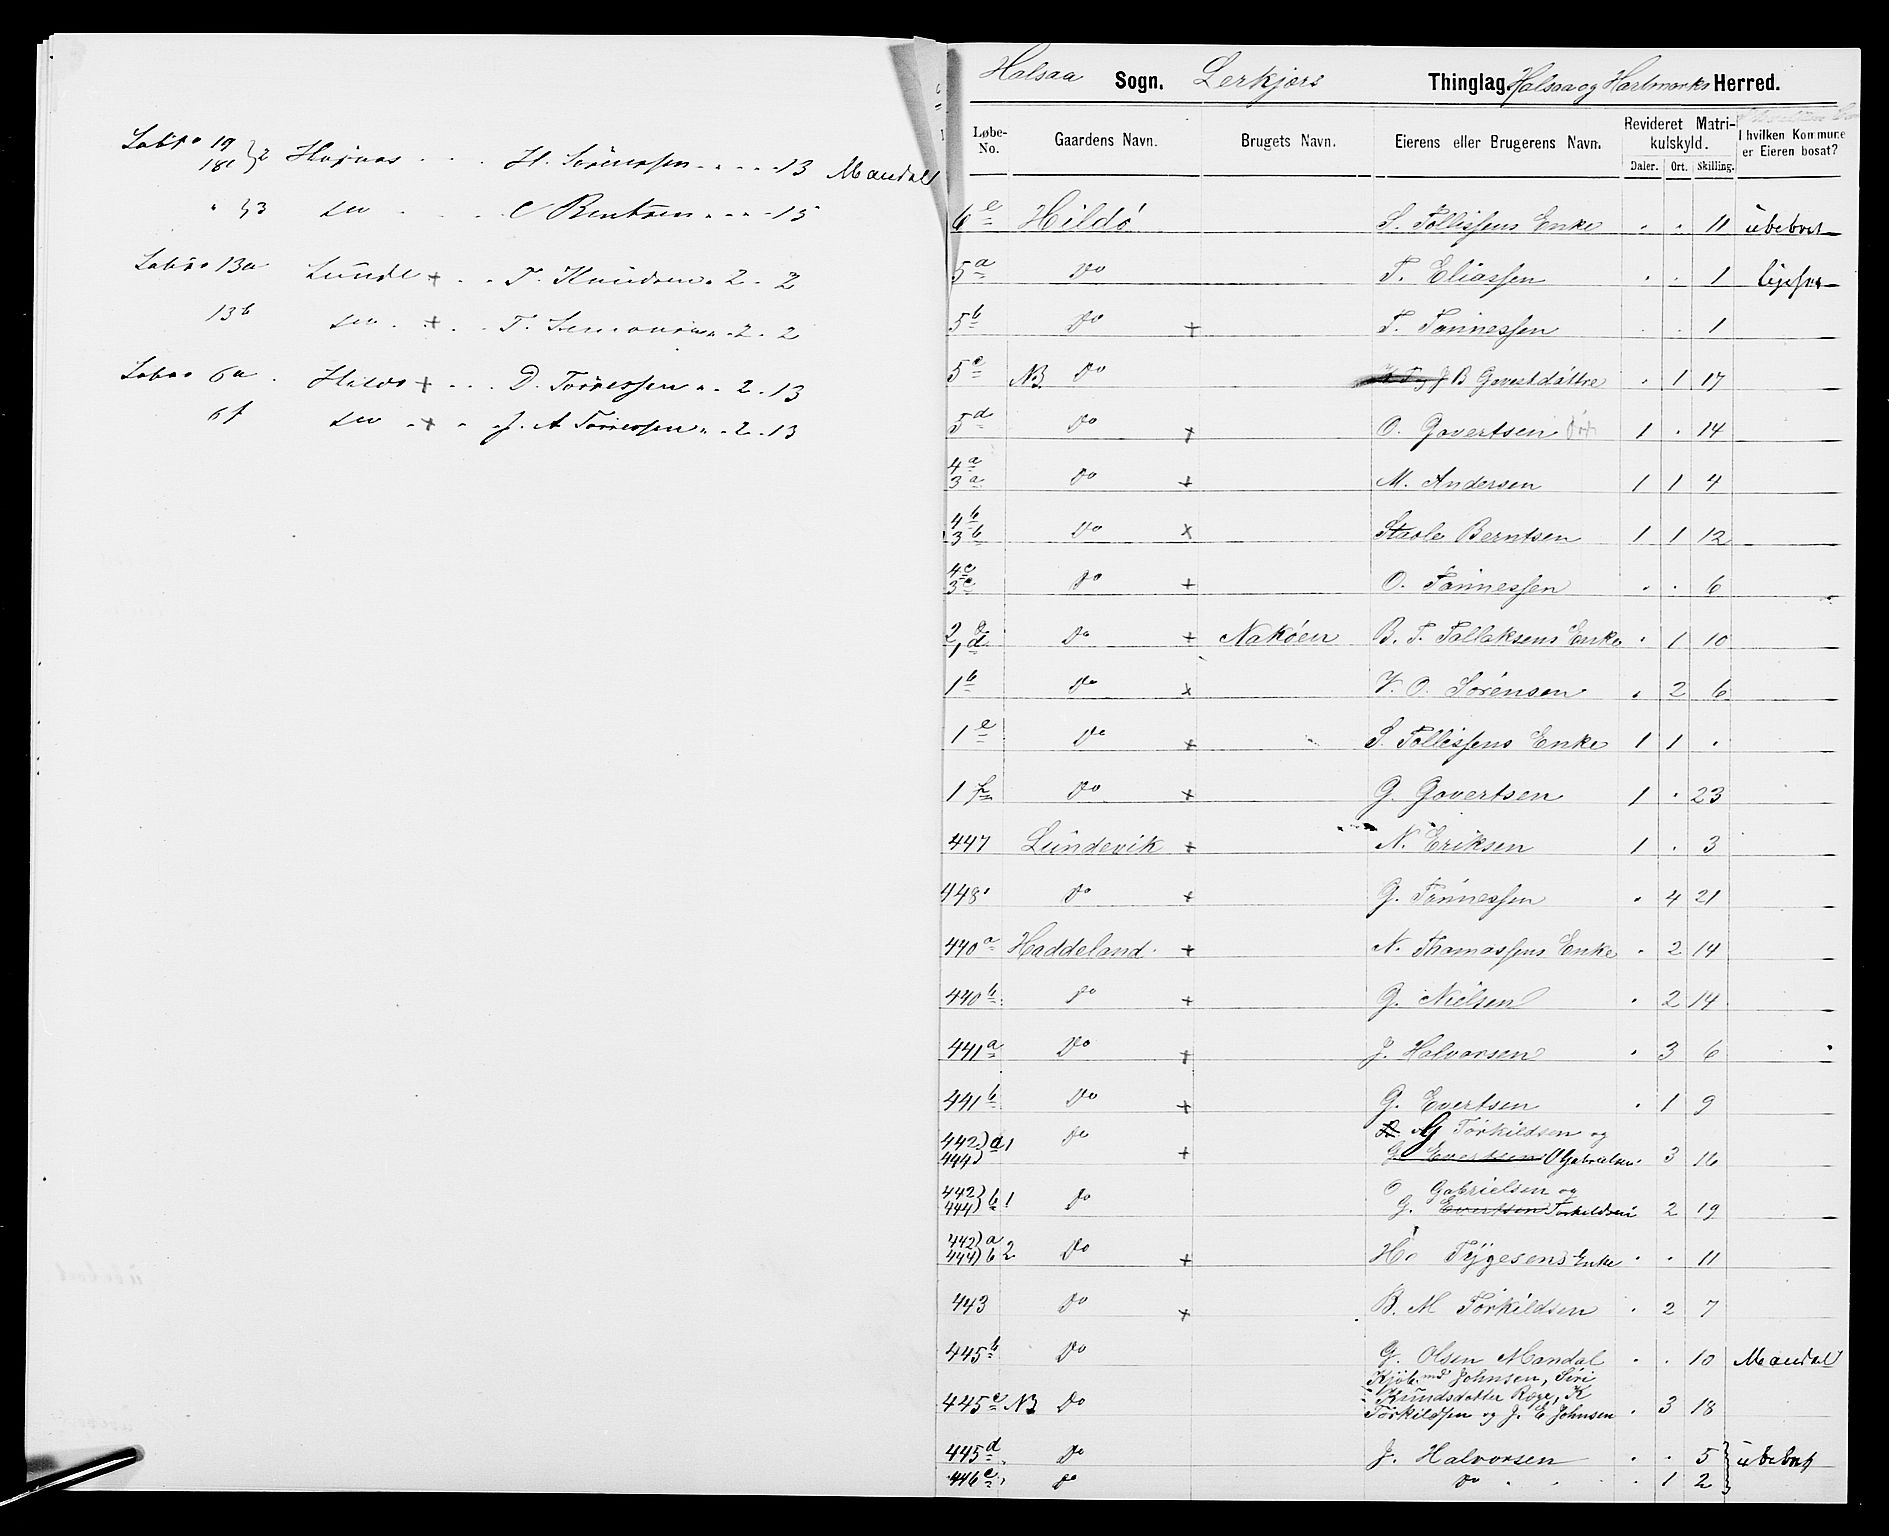 Løbno 19
18c } 2 Hogaas . . . H. Sörenssen . . . . 13 Mandal
" } 3 do . . . C Berntsen . . . . 15
Løbno 13a Lunde + . . T. Knudsen . 2 . 2
13b do . + . . T. Simonsen . 2 . 2
Løbno 6a . Hildö + . . . D. Tönnessen . . 2 . 13
6f do . + . . J. A Tönnessen . . 2 . 13
Halsaa Sogn. Lerkjærs Thinglag Halsaa og Hartmarks Herred.
Løbe-No. Gaardens Navn. Brugets Navn. Eierens eller Brugerens Navn. Revideret Matrikulskyld. Daler. Ort. Skilling. I hvilken Kommune er Eieren bosat?
6e Hildö S. Tollissens Enke . . 11 ubeboet
5a Do T. Eliassen . . 1 ligesaa
5b Do + T. Tönnessen . . 1
5c NB Do J B Govertdöttre . 1 17
5d Do + O. Govertsen 1 . 14
4a
3a Do + M. Andersen 1 1 4
4b
3b Do x Staale Berntsen 1 1 12
4c
3c Do + O. Tönnessen . . 6
2,
1d Do + Naköen B. T. Tallaksens Enke . 1 10
1b Do x V. O. Sörensen . 2 6
1e Do + S. Tollissens Enke 1 1 .
1f Do + G. Govertsen 1 . 23
447 Lundevik + N. Eriksen 1 . 3
448 Do + G. Tönnessen . 4 21
440a Haddeland + N. Thomassens Enke . 2 14
440b Do + G. Nielsen . 2 14
441a Do + J. Halvorsen . 3 6
441b Do + G. Evertsen . 1 9
442)
444) a1 Do + G Torkildsen og
G. Evertsen O Gabrielsen . 3 16
442)
444) b1 Do O Gabrielsen og
G. Evertsen Torkildsen 2 19
442) a
444) b 2 Do + H. Tygesens Enke . . 11
443 Do + B. M Torkildsen . 2 7
445b Do G. Olsen Mandal . . 10 Mandal
445c NB Do Kjöbmd Johnsen, Siri
Knudsdatter Roge, K
Torkildsen og J. E. Johnsen . 3 18
445d Do J. Halvorsen . . 5 } ubeboet
446c Do Do . . . 1 2 }